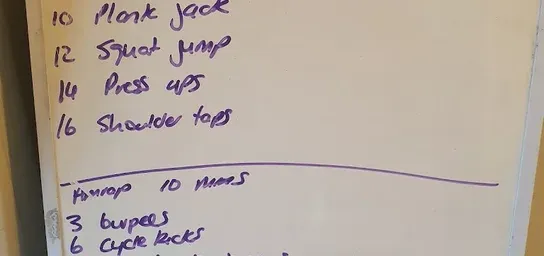 10 Plank jack
12 Squat jump
14 Press ups
16 Shoulder taps
Amrap 10 mins
3 burpees
6 cycle kicks